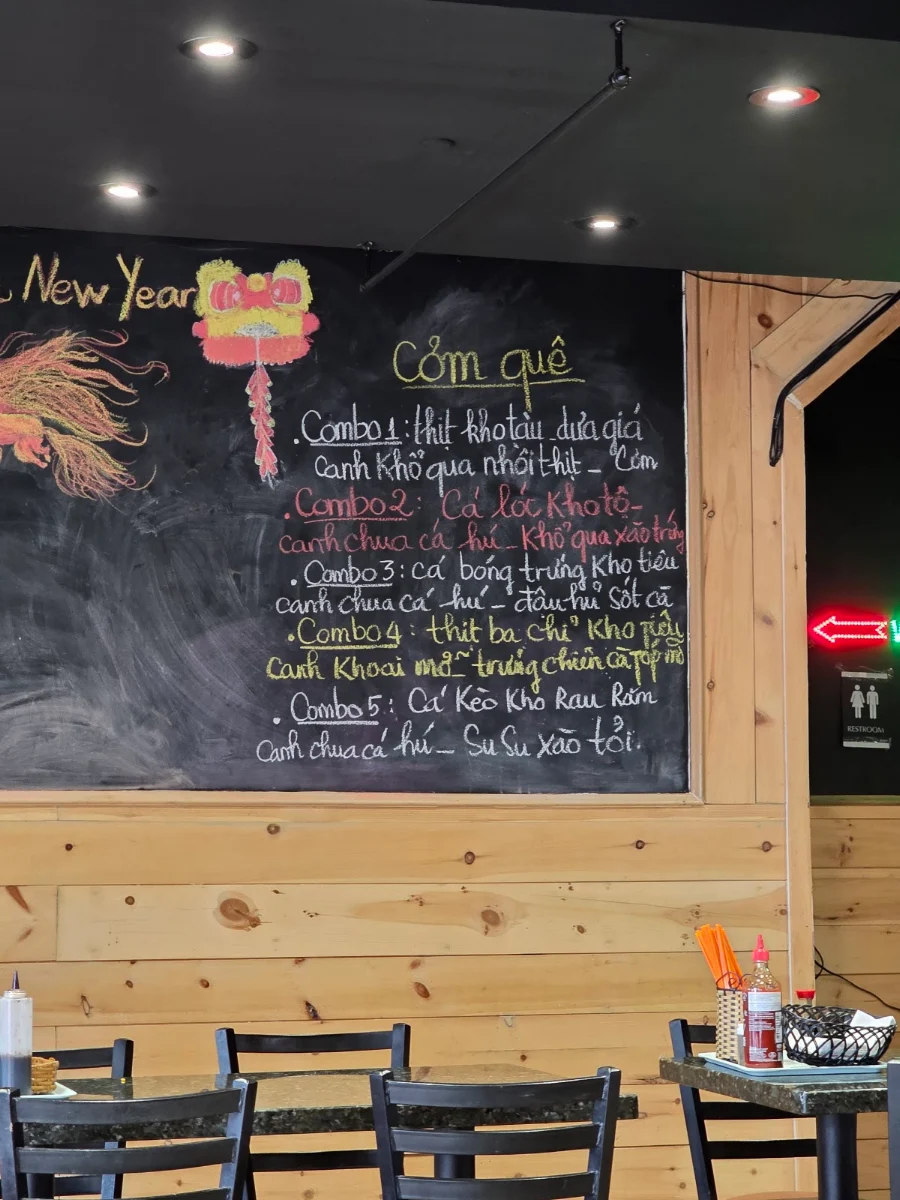 New Year
Cơm quê
. Combo 1 : thịt kho tàu _ dưa giá
canh Khổ qua nhồi thịt _ Cơm
. Combo 2 : Cá lóc Kho tộ -
canh chua cá hú _ Khổ qua xào trứng
. Combo 3 : cá bóng trứng Kho tiêu
canh chua cá hú - đậu hủ sốt cà
. Combo 4 : thịt ba chỉ Kho tiêu
canh Khoai mở _ trứng chiên cà tóp mỡ
. Combo 5 : Cá Kèo Kho Rau Răm
canh chua cá hú _ Su Su xào tỏi.
RESTROOM